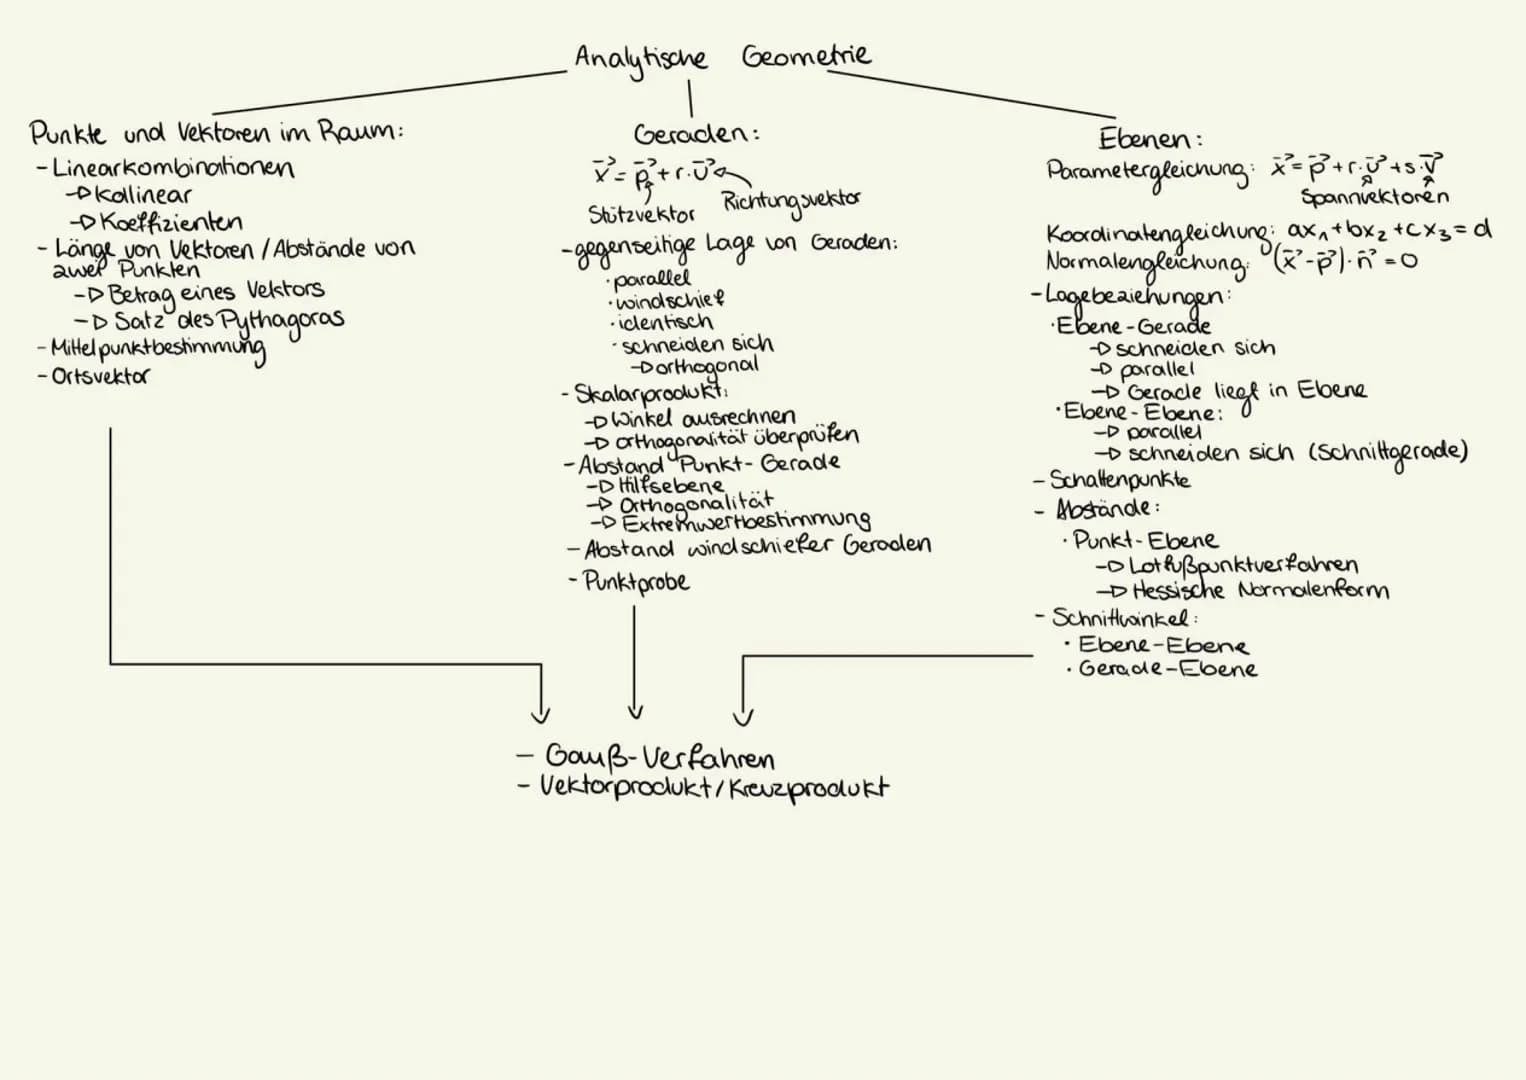 Analytische Geometrie
Punkte und Vektoren im Raum:
- Linearkombinationen
→ Kollinear
→ Koeffizienten
- Länge von Vektoren / Abstände von
zwei Punkten
→ Betrag eines Vektors
→ Satz des Pythagoras
- Mittelpunktbestimmung
- Ortsvektor
Geraden:
x⃗ = p⃗ + r · u⃗
Stützvektor Richtungsvektor
- gegenseitige Lage von Geraden:
· parallel
· windschief
· identisch
· schneiden sich
→ orthogonal
- Skalarprodukt:
→ Winkel ausrechnen
→ orthogonalität überprüfen
- Abstand Punkt - Gerade
→ Hilfsebene
→ Orthogonalität
→ Extremwertbestimmung
- Abstand windschiefer Geraden
- Punktprobe
Ebenen:
Parametergleichung: x⃗ = p⃗ + r · u⃗ + s · v⃗
Spannvektoren
Koordinatengleichung: ax₁ + bx₂ + cx₃ = d
Normalengleichung: (x⃗ - p⃗) · n⃗ = 0
- Lagebeziehungen:
· Ebene - Gerade
→ schneiden sich
→ parallel
→ Gerade liegt in Ebene
· Ebene - Ebene:
→ parallel
→ schneiden sich (Schnittgerade)
- Schattenpunkte
- Abstände:
· Punkt - Ebene
→ Lotfußpunktverfahren
→ Hessische Normalenform
- Schnittwinkel:
· Ebene - Ebene
· Gerade - Ebene
- Gauß-Verfahren
- Vektorprodukt / Kreuzprodukt